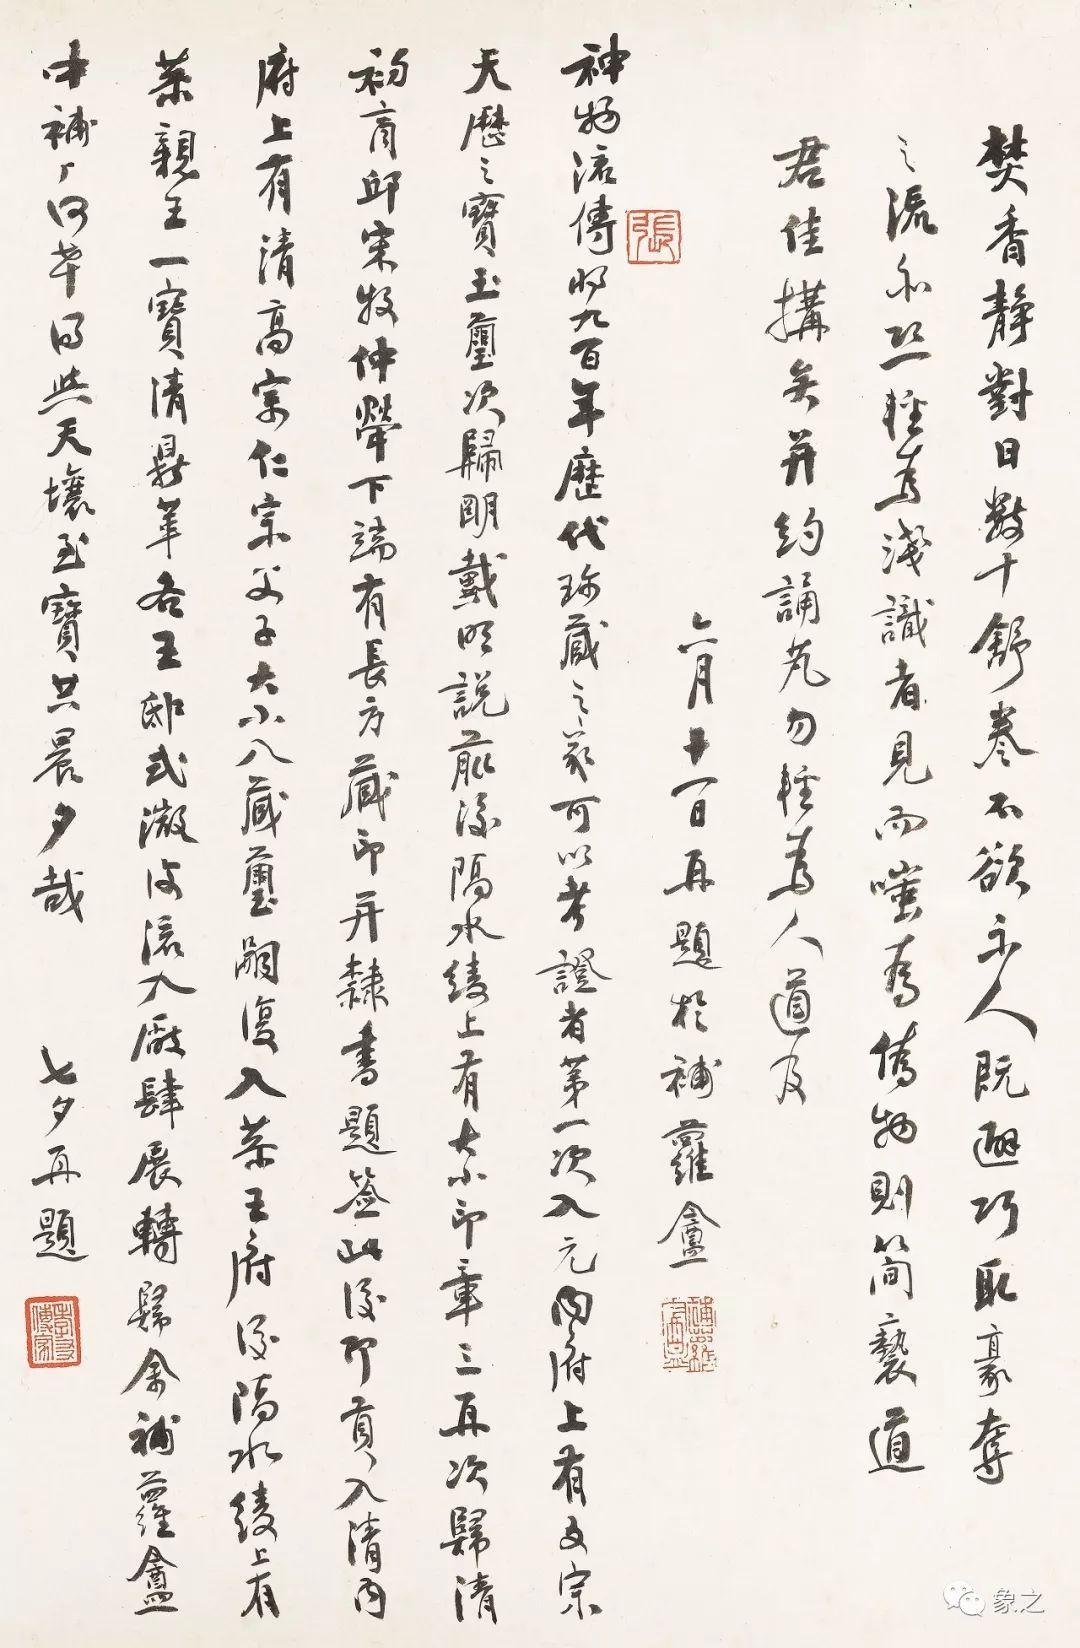 焚香靜對日數十舒卷不欲示人既避巧取豪奪
之流亦恐輕為淺識者見而嗤為僞物則簡褻道
君佳搆矣并約誦芃勿輕為人道及
六月十一日再題於補蘿盦
張
神物流傳將九百年歷代珍藏之家可以考證者第一次入元內府上有文宗
天曆之寶玉璽次歸明戴明說前後隔水綾上有大小印章三再次歸清
初商邱宋牧仲犖下端有長方藏印并隸書題簽此後即貢入清內
府上有清高宗仁宗父子大小八藏璽嗣復入恭王府後隔水綾上有
恭親王一寶清鼎革各王邸式微後流入廠肆展轉歸余補蘿盦
中補丁何幸得與天壤至寶共晨夕哉
七夕再題
象之